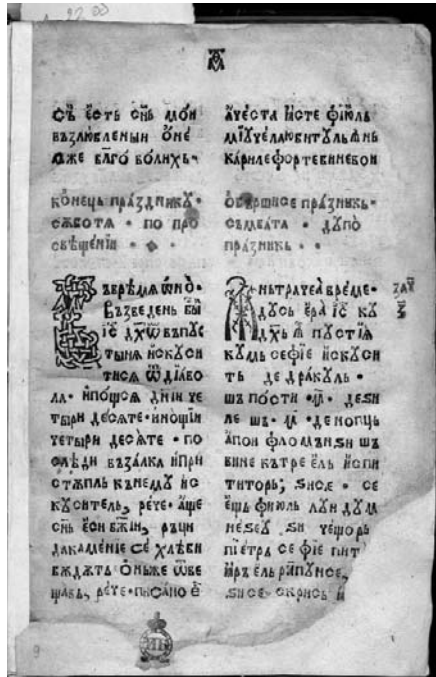 съ єсть сн҃ь мои
възлюбленыи ѻ не
мже бл҃го волихь·
конець праздникꙋ·
сѫботѧ · по про
свѣщенїи
Въ врѣмѧ ѡно·
възведень бы
іс҃ дх҃ѡ въ пꙋс
тынѧ искꙋси
тисѧ ѿ дїаво
ла· и пощсѧ днїи че
тыри десѧте· и нощїи
четыри десѧте · по
слѣди възалка и при
стѫпль къ немꙋ ис
кꙋситель, рече· аще
сн҃ь еси бж҃їи, рьци
да каменїе се хлѣби
бѫдѫть онъже ѿве
щавь, рече· писано е
ачеста исте фїюль
мїꙋ чел юбит ꙋль ѫнь
кариле форте бине вои
обършисе празникь·
съмбата · дꙋпо
празникь · ·
Ꙟньтрачеа време·
дꙋсь ера іс҃ кꙋ
дх҃ь ѫ пꙋстїѧ
кꙋмь се фїе искꙋси
ть де дракꙋль ·
шъ пости ·м҃· де зи
ле шь ·м҃· де нопць
апои фломънзи шъ
вине кътре ель испи
титорь; зисе · се
ещь фиюль лꙋи дꙋм
незеꙋ зи чещорь
пїетрѫ се фїе пит
ѫръ ель рѫпꙋнсе,
зисе скрись и